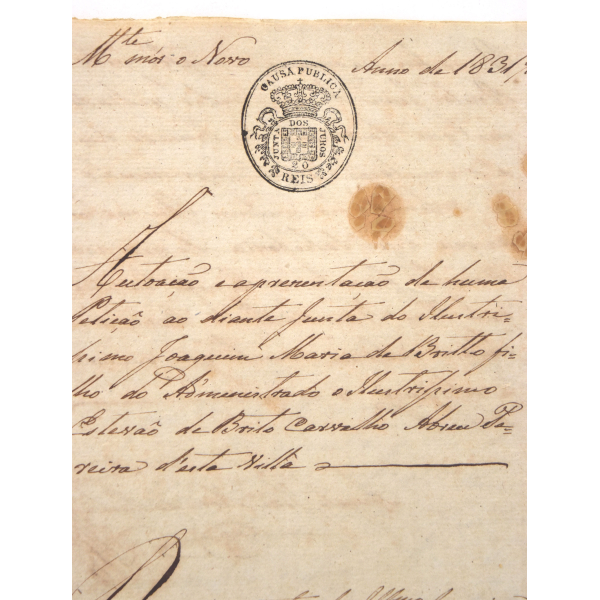 Mte mór o Novo Anno de 1831
CAUSA PUBLICA
JUNTA DOS JUROS
20
REIS
Autoação e aprezentação de huma
Petição ao diante Junta do Ilustri-
ssimo Joaquim Maria de Britto fi-
lho do Administrado o Ilustrissimo
Estevaõ de Brito Carvalho Abreu Pe-
reira d'esta Villa